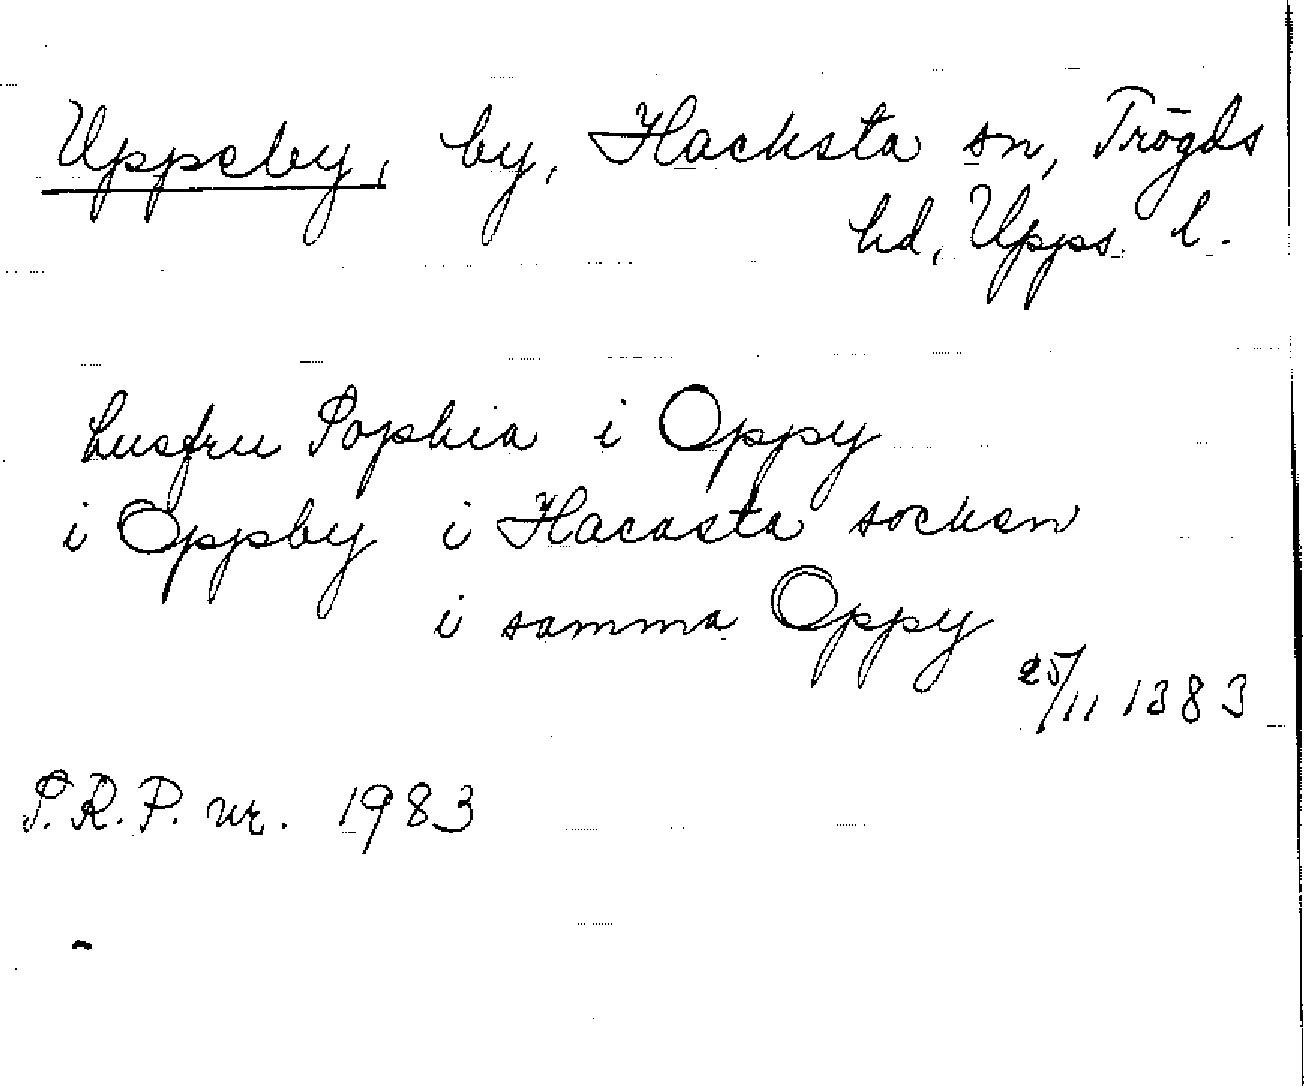 Uppeby, by, Hacksta sn, Trögds
hd, Upps. l.
husfru Sophia i Oppy
i Oppby i Hacasta socken
i samma Oppy
25/11 1383
S.R.P. nr. 1983